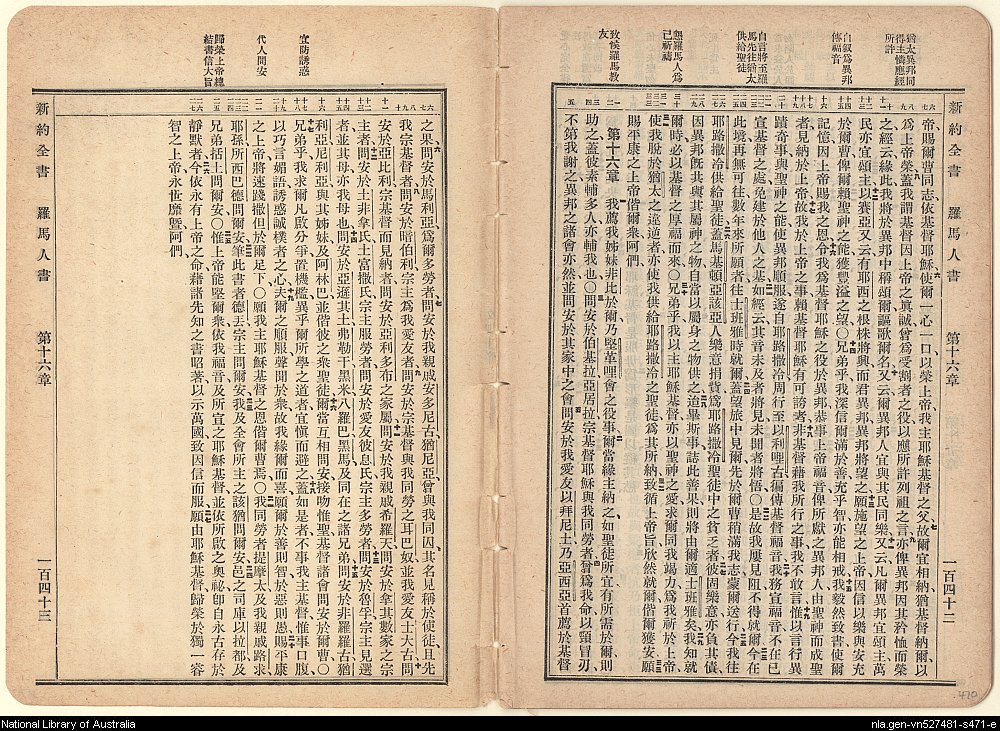 新約全書 羅馬人書 第十六章 一百四十二
猶太異邦同
得主憐應經
所許
自叙爲異邦
傳福音
自言將至羅
馬先往猶太
供給聖徒
懇羅馬人爲
己祈禱
致候羅馬教
友
帝賜爾曹同志依基督耶穌使爾一心一口以榮上帝我主耶穌基督之父故爾宜相納猶基督納爾以
爲上帝榮蓋我謂基督因上帝之眞誠曾爲受割者之役以應所許列祖之言亦俾異邦因其矜恤而榮
之經云緣此我將於異邦中稱頌爾謳歌爾名又云爾異邦人宜與其民同樂又云凡爾異邦宜頌主萬
民亦宜頌主以賽亞又云有耶西之根株將興而君異邦異邦將望之願施望之上帝因信以樂與安充
於爾曹俾爾賴聖神之能獲豐溢之望〇兄弟乎我深信爾滿於善充乎智亦能相戒我毅然致書使爾
記憶因上帝賜我之恩令我爲基督耶穌之役於異邦恭事上帝福音俾所獻之異邦人由聖神而成聖
者見納於上帝故我於上帝之事賴基督耶穌有可誇者非基督藉我所行之事我不敢言惟以言行異
蹟奇事與聖神之能使異邦順服遂自耶路撒冷周行至以利哩古徧傳基督福音我務宣福音不在已
宣基督之處免建於他人之基如經云其音未及者將見未聞者將悟〇是故我屢見阻不得就爾今在
此境再無可往數年來所願者往士班雅時就爾蓋望旅中見爾先於爾曹稍滿我志蒙爾送行今我往
耶路撒冷供給聖徒蓋馬基頓亞該亞人樂意捐貲爲耶路撒冷聖徒中之貧乏者彼固樂意亦負其債
因異邦旣共與其屬神之物自當以屬身之物供之迨畢斯事誌此善果則將由爾適士班雅矣我知就
爾時必以基督之厚福而來〇兄弟乎我以主耶穌基督亦以聖神之愛求爾同我竭力爲我祈於上帝
使我脫於猶太之違逆者亦使我供給耶路撒冷之聖徒爲其所納致循上帝旨欣然就爾偕爾獲安願
賜平康之上帝偕爾衆阿們
第十六章 我薦我姊妹非比於爾乃堅革哩會之役事爾當緣主納之如聖徒所宜有所需於爾則
助之蓋彼素輔多人亦輔我也〇問安於百基拉亞居拉宗基督耶穌與我同勞者曾爲我命以頸冒刃
不第我謝之異邦之諸會亦然並問安於其家中之會問安於我愛友以拜尼土乃亞西亞首薦於基督
新約全書 羅馬人書 第十六章 一百四十三
宜防誘惑
代人問安
歸榮上帝總
結書信大旨
之果問安於馬利亞爲爾多勞者問安於我親戚安多尼古猶尼亞曾與我同囚其名見稱於使徒且先
我宗基督者問安於暗伯利宗主爲我愛友者問安於宗基督與我同勞之耳巴奴並我愛友士大古問
安於亞比利宗基督而見納者問安於亞利多布之家屬問安於我親戚希羅天問安於拿其數家之宗
主者問安於士非拿氏土富撒氏宗主服勞者問安於愛友彼息氏宗主多勞者問安於魯孚宗主見選
者並其母亦我母也問安於亞遜其土弗勒干黑米八羅巴黑馬及同在之諸兄弟問安於非羅羅古猶
利亞尼利亞與其姊妹及阿林巴並偕彼之衆聖徒爾當互相問安接吻惟聖基督諸會問安於爾曹〇
兄弟乎我求爾凡啟分爭置機檻異乎爾所學之道者宜愼而避之蓋如是者不事我主基督惟事口腹
以巧言媚語誘惑誠樸者之心夫爾之順服聲聞於衆故我緣爾而喜願爾於善則智於惡則愚賜平康
之上帝將速踐撒但於爾足下〇願我主耶穌基督之恩偕爾曹焉〇我同勞者提摩太及我親戚路求
耶孫所西巴德問爾安筆此書者德丟宗主問爾安我及全會所主之該猶問爾安邑之司庫以拉都及
兄弟括土問爾安〇惟上帝能堅爾衆依我福音及所宣之耶穌基督並依所啟之奧祕卽自永古存於
靜默者今依永有上帝之命藉諸先知之書昭著以示萬國致因信而服願由耶穌基督歸榮於獨一睿
智之上帝永世靡曁阿們
420
National Library of Australia
nla.gen-vn527481-s471-e